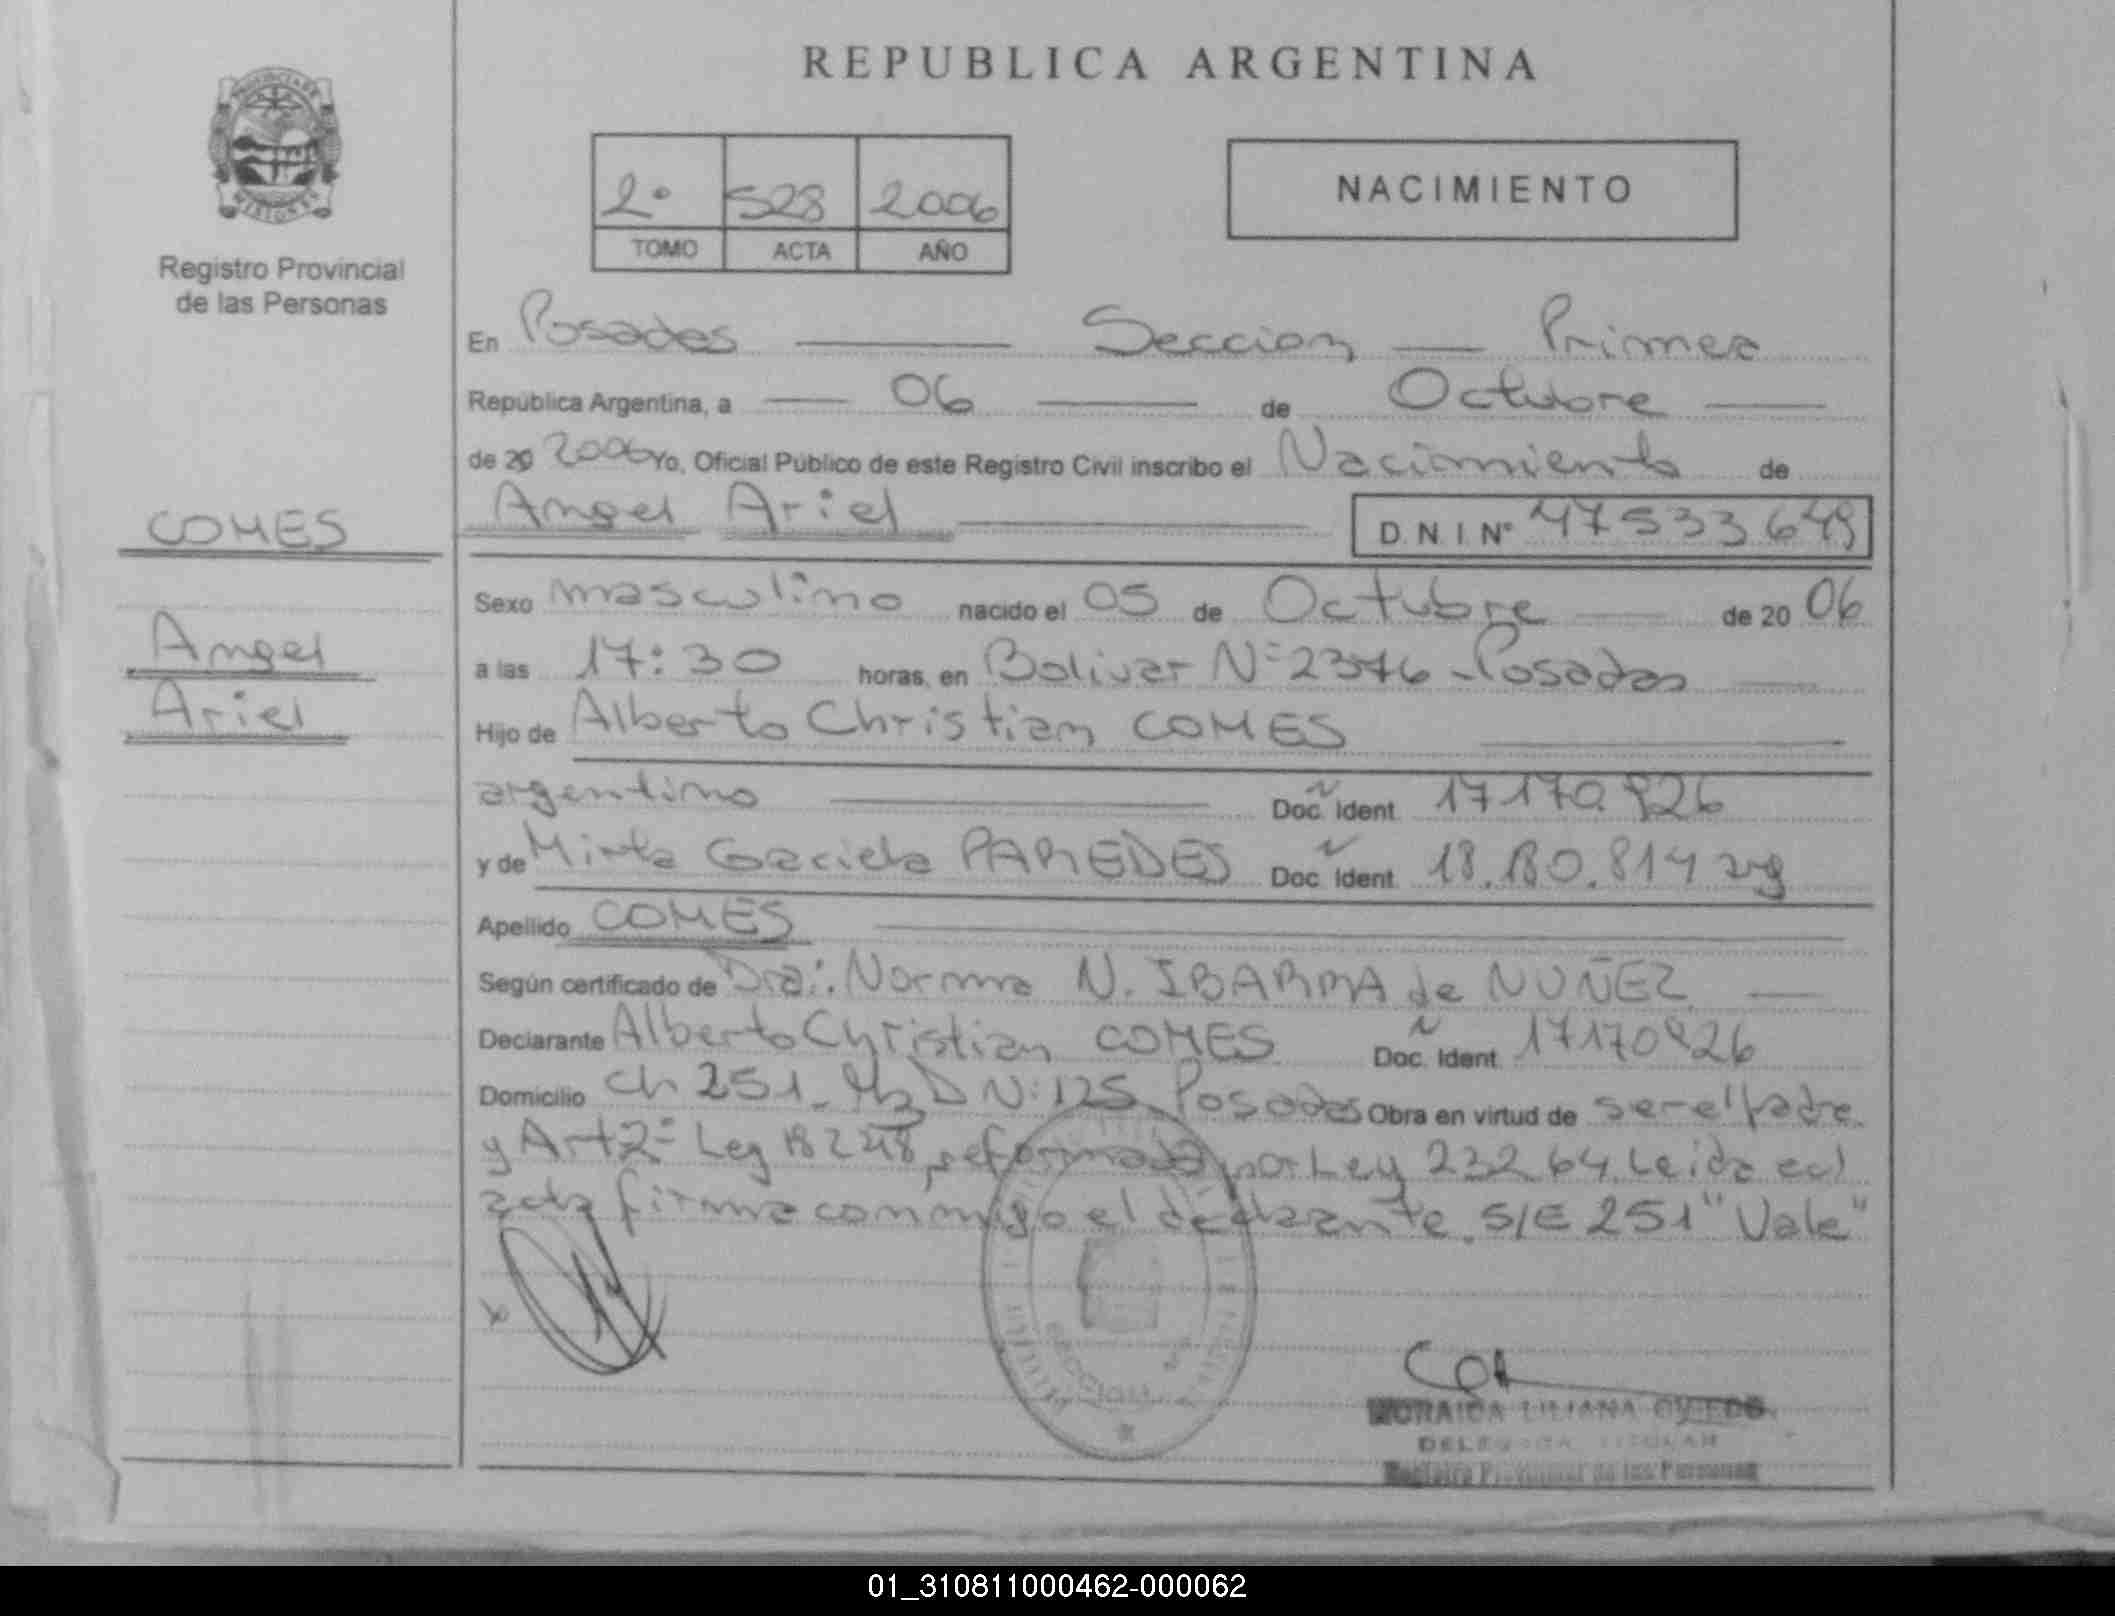 REPUBLICA ARGENTINA
PROVINCIA DE
MISIONES
Registro Provincial
de las Personas
2º 528 2006
TOMO ACTA AÑO
NACIMIENTO
En Posadas Seccion Primera
República Argentina, a 06 de Octubre
de 20 2006 Yo, Oficial Público de este Registro Civil inscribo el Nacimiento de
COMES
Angel
Ariel
Angel Ariel D.N.I Nº 47533649
Sexo masculino nacido el 05 de Octubre de 20 06
a las 17:30 horas, en Bolivar Nº 2376 - Posadas
Hijo de Alberto Christian COMES
argentino Doc. Ident. 17170926
y de Mirta Graciela PAREDES Doc. Ident. 18.180.814 arg
Apellido COMES
Según certificado de Dra. Norma N. IBARRA de NUÑEZ
Declarante Alberto Christian COMES Doc. Ident. 17170926
Domicilio Ch 251 - Mz D Nº 125 Posadas Obra en virtud de ser el padre
y Art 2º Ley 18248, reformada por Ley 23264. Leida el
acta firma conmigo el declarante. S/E 251 "Vale"
x
SECCION
LILIANA OVIEDO
DELEGADA TITULAR
Registro Provincial de las Personas
01_310811000462-000062